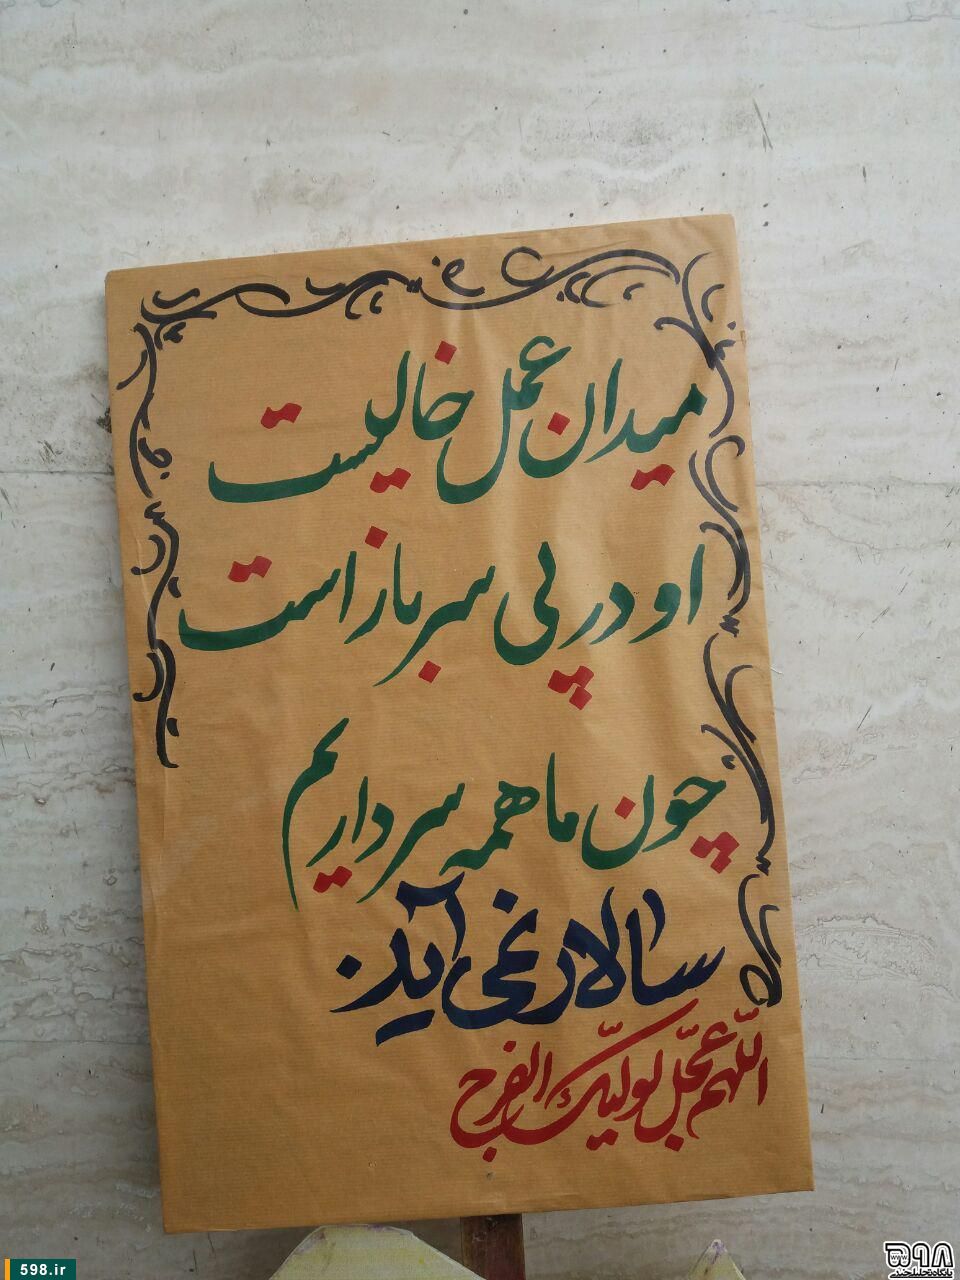 میدان عمل خالیست
او در پی سرباز است
چون ما همه سرداریم
سالار نمی آید.
اللّهم عجّل لولیّک الفرج
598.ir
۵۹۸